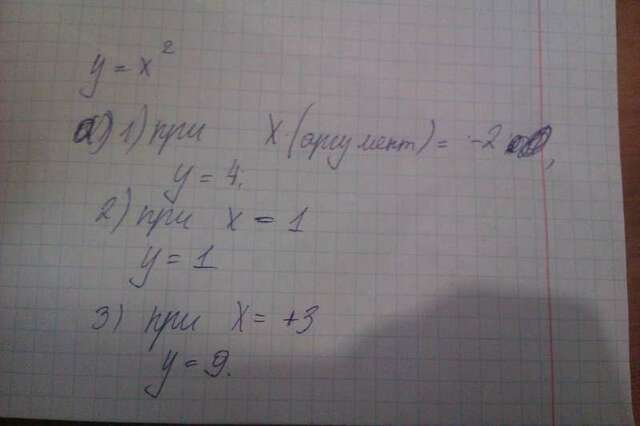 y = x²
а) 1) при x (аргумент) = -2,
y = 4.
2) при x = 1
y = 1
3) при x = +3
y = 9.